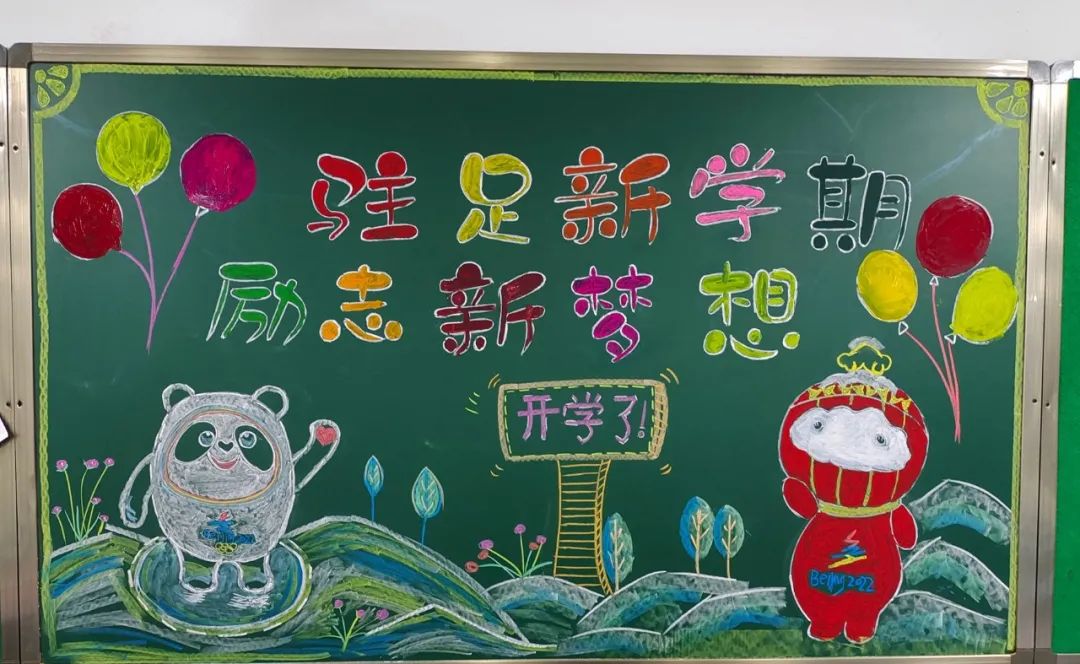 驻足新学期
励志新梦想
开学了!
Beijing 2022